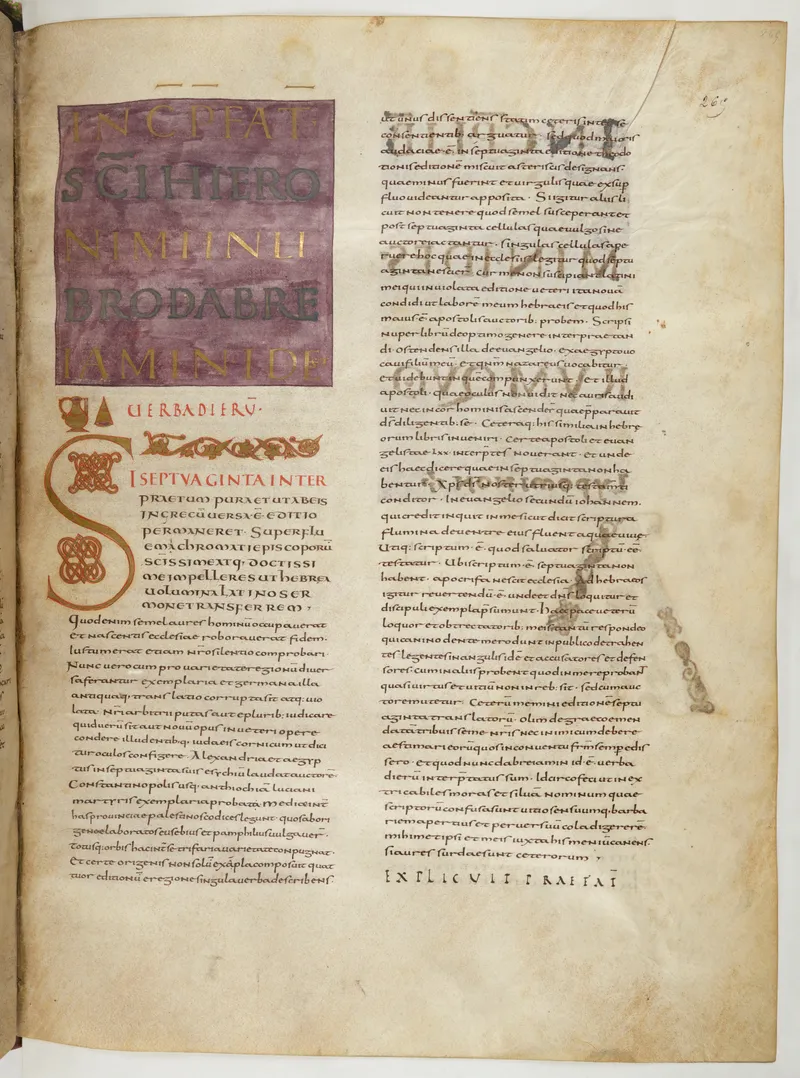 INCP PFAT
SCI HIERO
NIMI IN LI
BRO DABRE
IAMIN ID EST
UERBA DIERŪ·
SI SEPTUAGINTA INTER
PRAETUM PURA ET UT AB EIS
IN GRECŪ UERSA·Ē· EDITIO
PERMANERET· SUPERFLU
E mi chromati episcoporū
SCISSIME ATQ; DOCTISSI
ME IMPELLERES UT HEBREA
UOLUMINA LATINO SER
MONE TRANSFERREM;
Quod enim semel aures hominū occupauerat
et nascentis ecclesiae roborauerat fidem·
Iustum erat etiam nro silentio comprobari·
Nunc uero cum pro uarietate regionū diuer
sa ferantur exemplaria et germana illa
antiquaq; translatio corrupta sit atq; uio
lata· Nri arbitrii putas aut e plurib; iudicare
quid uerū sit aut nouū opus in ueteri opere
condere illudentibq; iudaeis cornicum ut dici
tur oculos configere· Alexandria et aegyp
tus in septuaginta suis esychiū laudat auctorē·
Constantinopolis usq; anthiochiā luciani
martyris exemplaria probat· Mediae int
has prouinciae palestinos codices legunt· quos ab ori
gene elaboratos eusebius et pamphilius uulgauer·
Totusq; orbis hac int se trifaria uarietate conpugnat·
Et certe origenis non solū exāpla composuit quat
tuor editionū e regione singula uerba describens·
265
ut unus dissentiens statim ceteris inter se
consentientib; arguatur· sed quod maioris
audaciae·ē· in septuaginta editione theodo
tionis editionē miscuit asteriscis designans·
quae minus fuerint et uirgulis quae ex sup
fluo uideantur apposita· Si igitur aliis li
cuit non tenere quod semel susceperant et
post septuaginta cellulas quae uulgo sine
auctore iactantur· singulas cellulas ape
ruere hocquae in ecclesiis legitur quod septu
aginta nescier· cur me non suscipiant latini
mei qui inuiolata editione ueteri ita nouā
condidi ut laborē meum hebraeis et quod his
maius·ē· apostolis auctorib; probem· Scripsi
nuper librū de optimo genere interpraetan
di· Ostendens illa de euangelio· ex aegypto uo
caui filiū meū· Et qnm nazareus uocabitur·
Et uidebunt in quē compunxerunt· et illud
apostoli· quae oculus non uidit nec auris audi
uit nec in cor hominis ascender quae pparauit
ds diligentib; se· Ceteraq; his similia in hebre
orum libris inueniri· Certe apostoli et euan
gelistae·lxx· interptes nouerant· et unde
eis haec dicere quae in septuaginta non ha
bentur· Xps ds noster utriusq; testamti
conditor· In euangelio secundū iohannem·
qui credit inquit in me sicut dicit scriptura
flumina de uentre eius fluent aquae uiuae
Utiq; scriptum·ē· quod saluator scriptū eē
testatur· Ubi scriptum·ē· septuaginta non
habent· apocrifa nescit ecclesia· Ad hebraeos
igitur reuertendū·ē· unde et dns loquitur et
discipuli exempla psumunt· haec pace ueterū
loquor et obtrectatorib; meis tantū respondeo
qui canino dente me rodunt in publico detrahen
tes legentes in angulis idē et accusatores et defen
sores· cum in aliis probent quod in me reprobant
quasi uirtus et uitiū non in reb; sit· sed cum auc
tore mutetur· Ceterū memini editionē septu
aginta translatorū· olim de graeco emen
data tribuisse me nris nec inimicum debere
aestimari eorū quos in conuentu frm semp edis
sero· et quod nunc dabreiamin id·ē· uerba
dierū interptatus sum· Idcirco feci ut inex
tricabiles moras et siluā nominum quae
scriptorū confusa sunt uitio sensuumq; barba
riem apertius et per uersuū cola digererē·
mihimet ipsi et meis iuxta hismeniū canens·
si aures surdae sunt ceterorum;
EXPLICUIT PRAEFAT̄